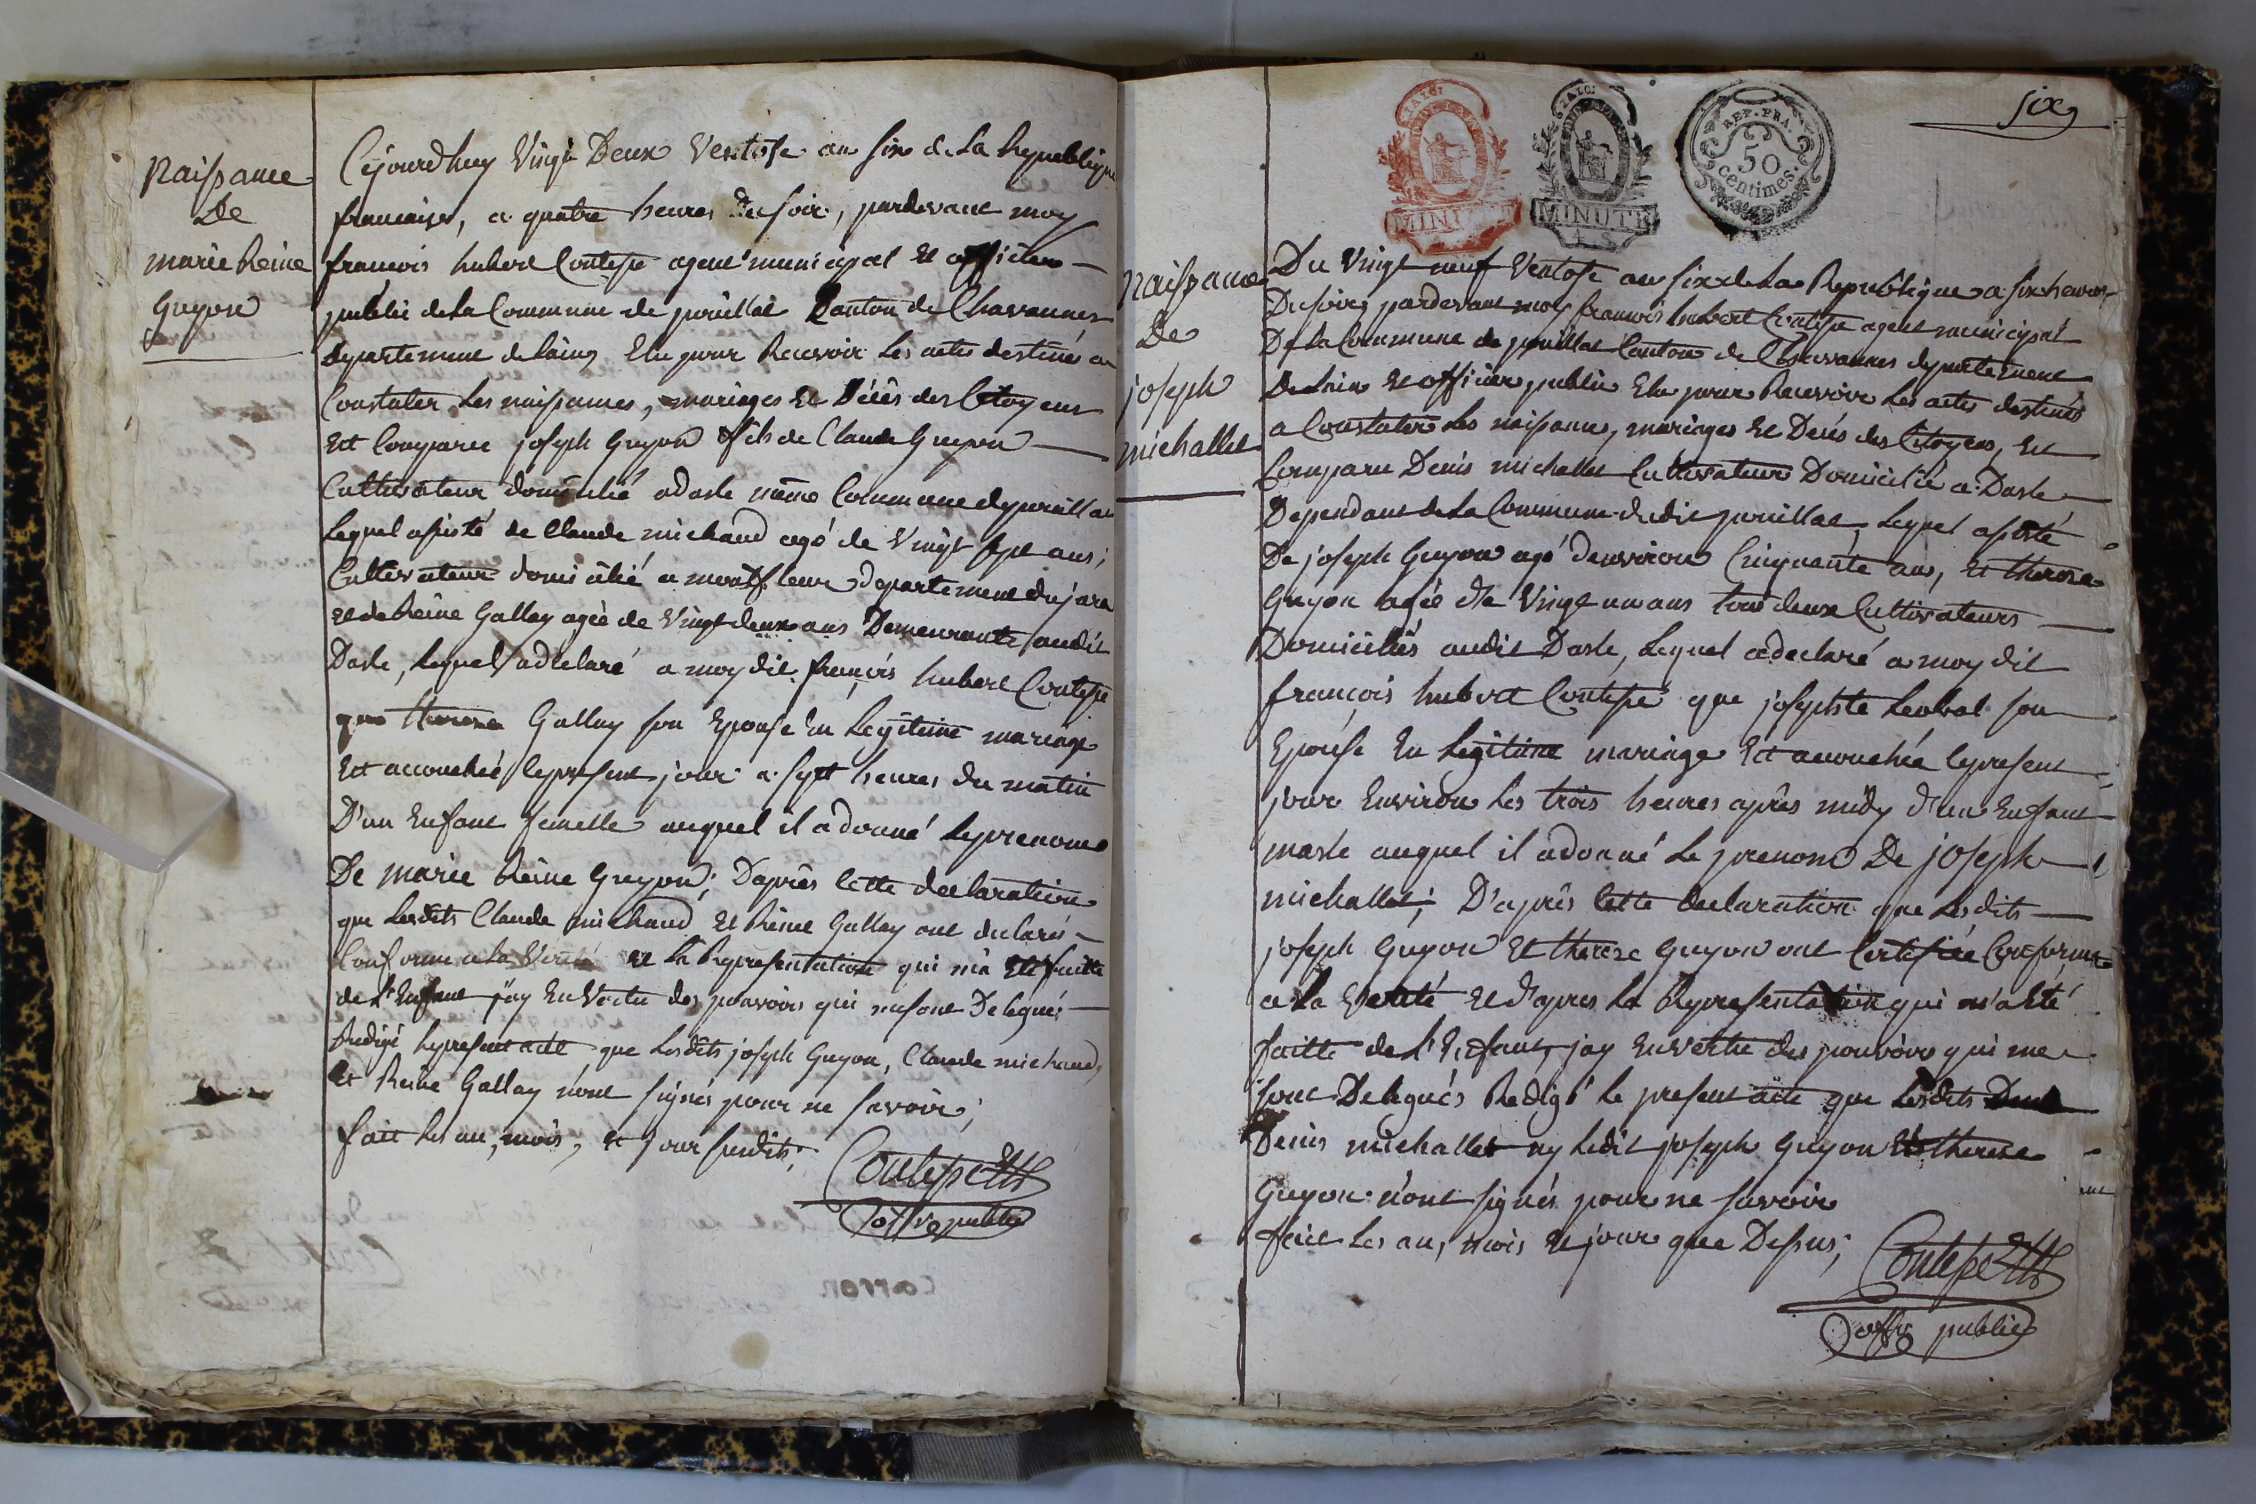 Naissance
De
marie Reine
Guyon
Cejourdhuy Vingt Deux Ventose an six de La Republique
francaise, a quatre heures du soir, pardevant moy
francois hubert Contesse agent municipal et officier
public de la Commune de pouillat Canton de Chavannes
Departement de lain, Elu pour Recevoir Les actes destinés a
Constater Les naissances, mariages et Décès des Citoyens
Est Comparu joseph Guyon fils de Claude Guyon
Cultivateur domicilié a Dasle même Commune de pouillat
Lequel assisté de Claude michaud agé de Vingt sept ans,
Cultivateur domicilié a montfleur departement du jura
et de Reine Gallay agée de Vingt deux ans Demeurante audit
Dasle, Lequel a declaré a moy dit francois hubert Contesse
que therese Gallay son Epouse En Legitime mariage
Est accouchée le present jour a sept heures du matin
D'un Enfant femelle auquel il a donné le prenom
De marie Reine Guyon; D'après Cette declaration
que Lesdits Claude michaud et Reine Gallay ont declaré
Conforme a La Verité et La Representation qui m'a Eté faitte
de L'Enfant j'ay En Vertu des pouvoirs qui me sont Delegués
Redigé le present acte que Lesdits joseph Guyon, Claude michaud,
et Reine Gallay n'ont signés pour ne savoir;
fait Les an, mois, et jour susdits;
Contesse
off. public
Carron
six
REP. FRA.
50
centimes.
MINUTE
MINUTE
Naissance
De
joseph
michallet
Du Vingt neuf Ventose an six de La Republique a six heures
Du soir, pardevant moy francois hubert Contesse agent municipal
De La Commune de pouillat Canton de Chavannes departement
De Lain et officier public Elu pour Recevoir Les actes destinés
a Constater Les naissances, mariages et Decés des Citoyens, Est
Comparu Denis michallet Cultivateur Domicilié a Dasle
Dependant de La Commune dudit pouillat, Lequel assisté
De joseph Guyon agé denviron Cinquante ans, et therese
Guyon agée de Vingt un ans tous deux Cultivateurs
Domiciliés audit Dasle, Lequel a declaré a moy dit
francois hubert Contesse que josephte son
Epouse En Legitime mariage Est accouchée le present
jour Environ Les trois heures après midy d'un Enfant
masle auquel il a donné Le prenom De joseph
michallet; D'après Cette declaration que Lesdits
joseph Guyon et therese Guyon ont Certifiée Conforme
a La Verité et d'apres La Representation qui m'a Eté
faitte de L'Enfant, jay En vertu des pouvoirs qui me
sont Delegués Redigé Le present acte que Lesdits
Denis michallet ny Ledit joseph Guyon et therese
Guyon n'ont signés pour ne savoir
fait Les an, mois et jour que Dessus;
Contesse
off. public